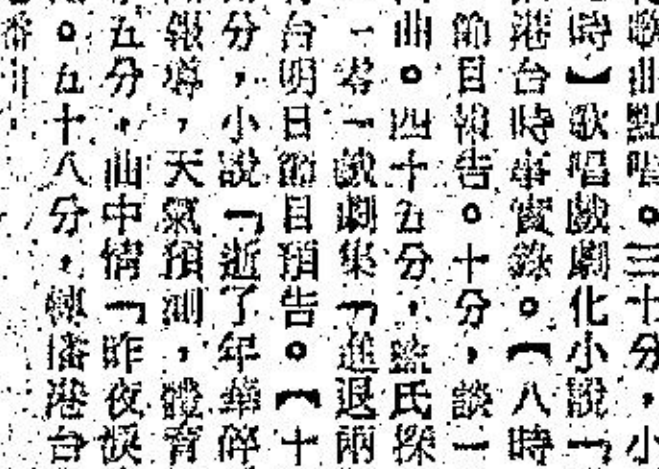 歌曲點唱。三十分,小
時】歌唱戲劇化小說「
港台時事實錄。【八時
節目預告。十分,談一
曲。四十五分,探
君一戲劇集「進退兩
台明日節目預告。【十
分,小說「逝了年華碎
報導,天氣預測,體育
五分,曲中情「昨夜淚
。五十八分,轉播港台